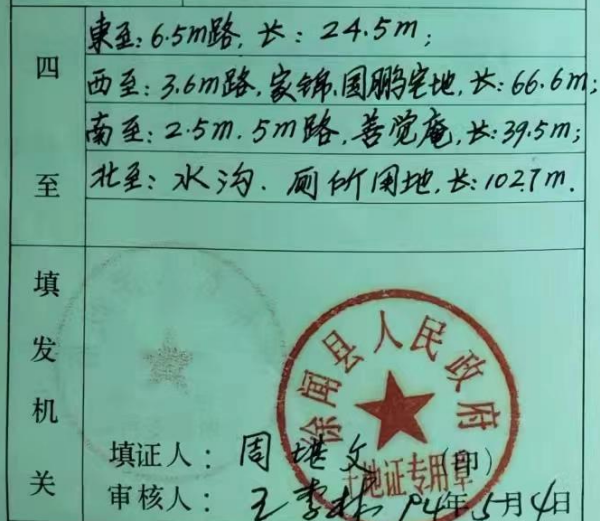 四至
東至：6.5m路，长：24.5m；
西至：3.6m路，家锦、国鹏宅地，长：66.6m；
南至：2.5m、5m路，善觉庵，长：39.5m；
北至：水沟、厕所用地，长：102.7m.
填发机关
徐闻县人民政府
土地证专用章
填证人：周堪文（印）
审核人：王李 94年5月4日